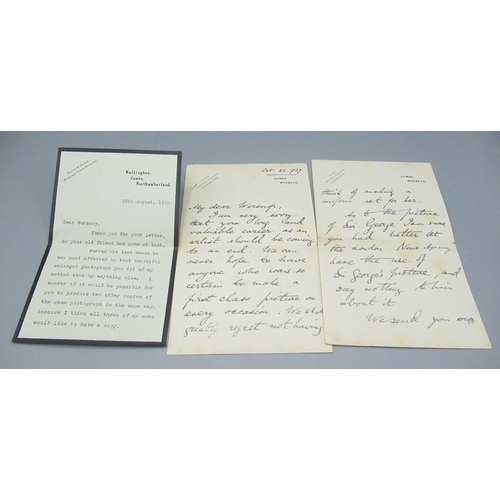 Wallington,
Cambo,
Northumberland.
28th August, 1928.
Dear Waranop,
Thank you for your letter.
So your old friend has gone at last.
During the last weeks he
was most affected by that beautiful
enlarged photograph you did of my
mother than by anything else. I
wonder if it would be possible for
you to produce two other copies of
the same photograph in the same way,
because I think all three of us sons
would like to have a copy.
Oct. 23. 1927
CAMBO,
MORPETH
My dear Waranop,
I am very sorry
that your long and
valuable career as an
artist should be coming
to an end. We can
never hope to have
anyone who was so
certain to make a
first class picture on
every occasion. We shall
greatly regret not having
CAMBO,
MORPETH
think of making a
uniform set for her.
As to the picture
of Sir George I am sure
you had better let
the London News Agency
have the use of
Sir George's picture, and
say nothing to him
about it.
We send you our